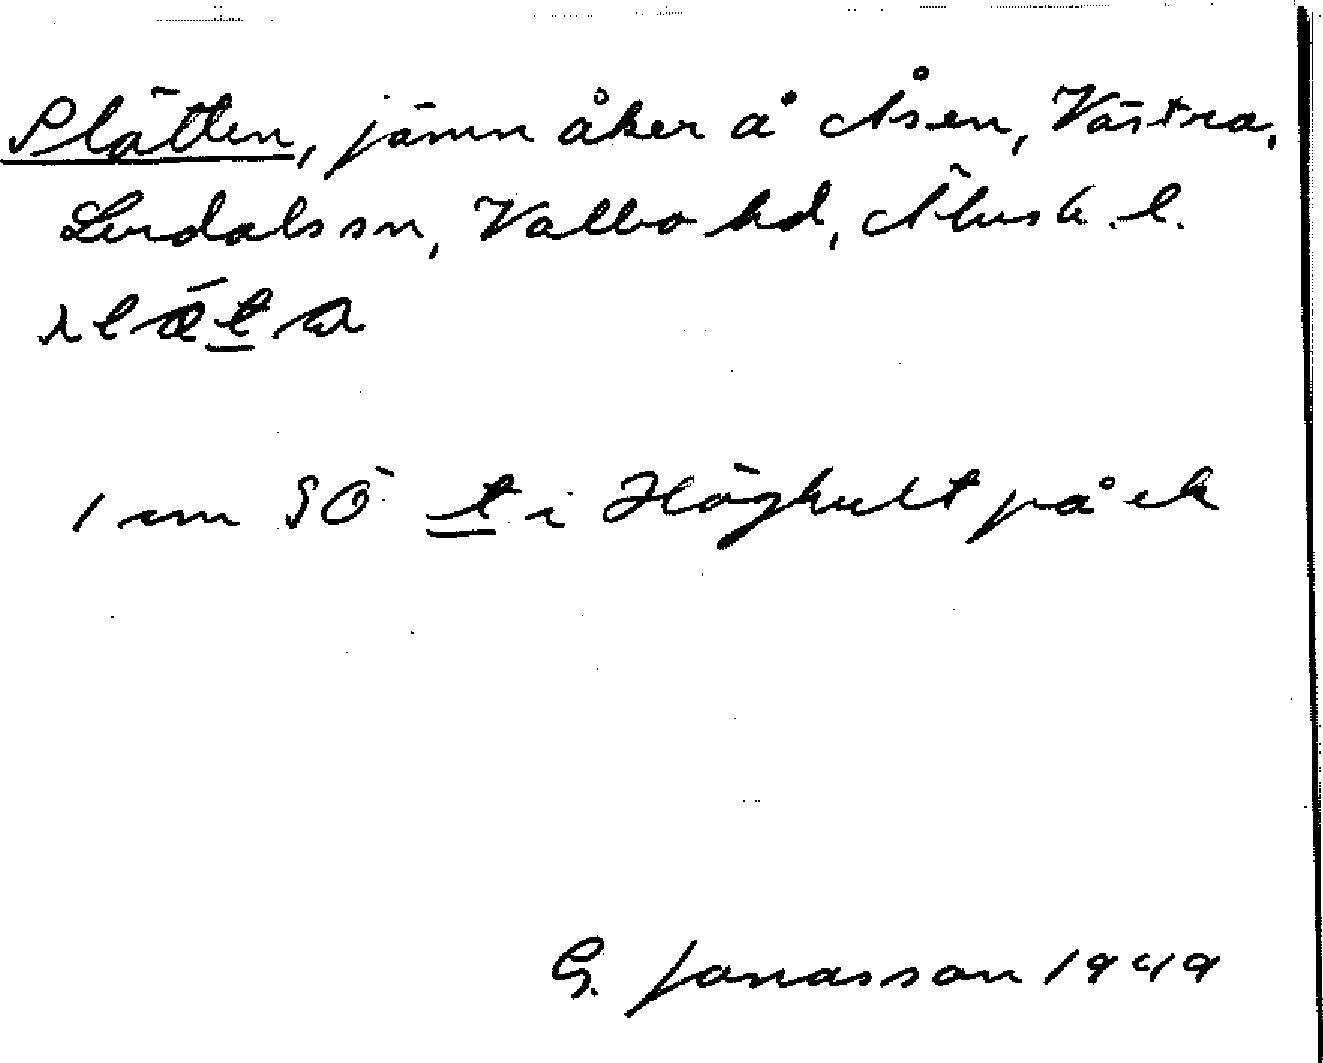 Slätten, jämn åker å Åsen, Västra,
Lerdals sn, Valbo hd, Älvsb. l.
1 cm SO t i Höghult på ek
G. Jonasson 1949